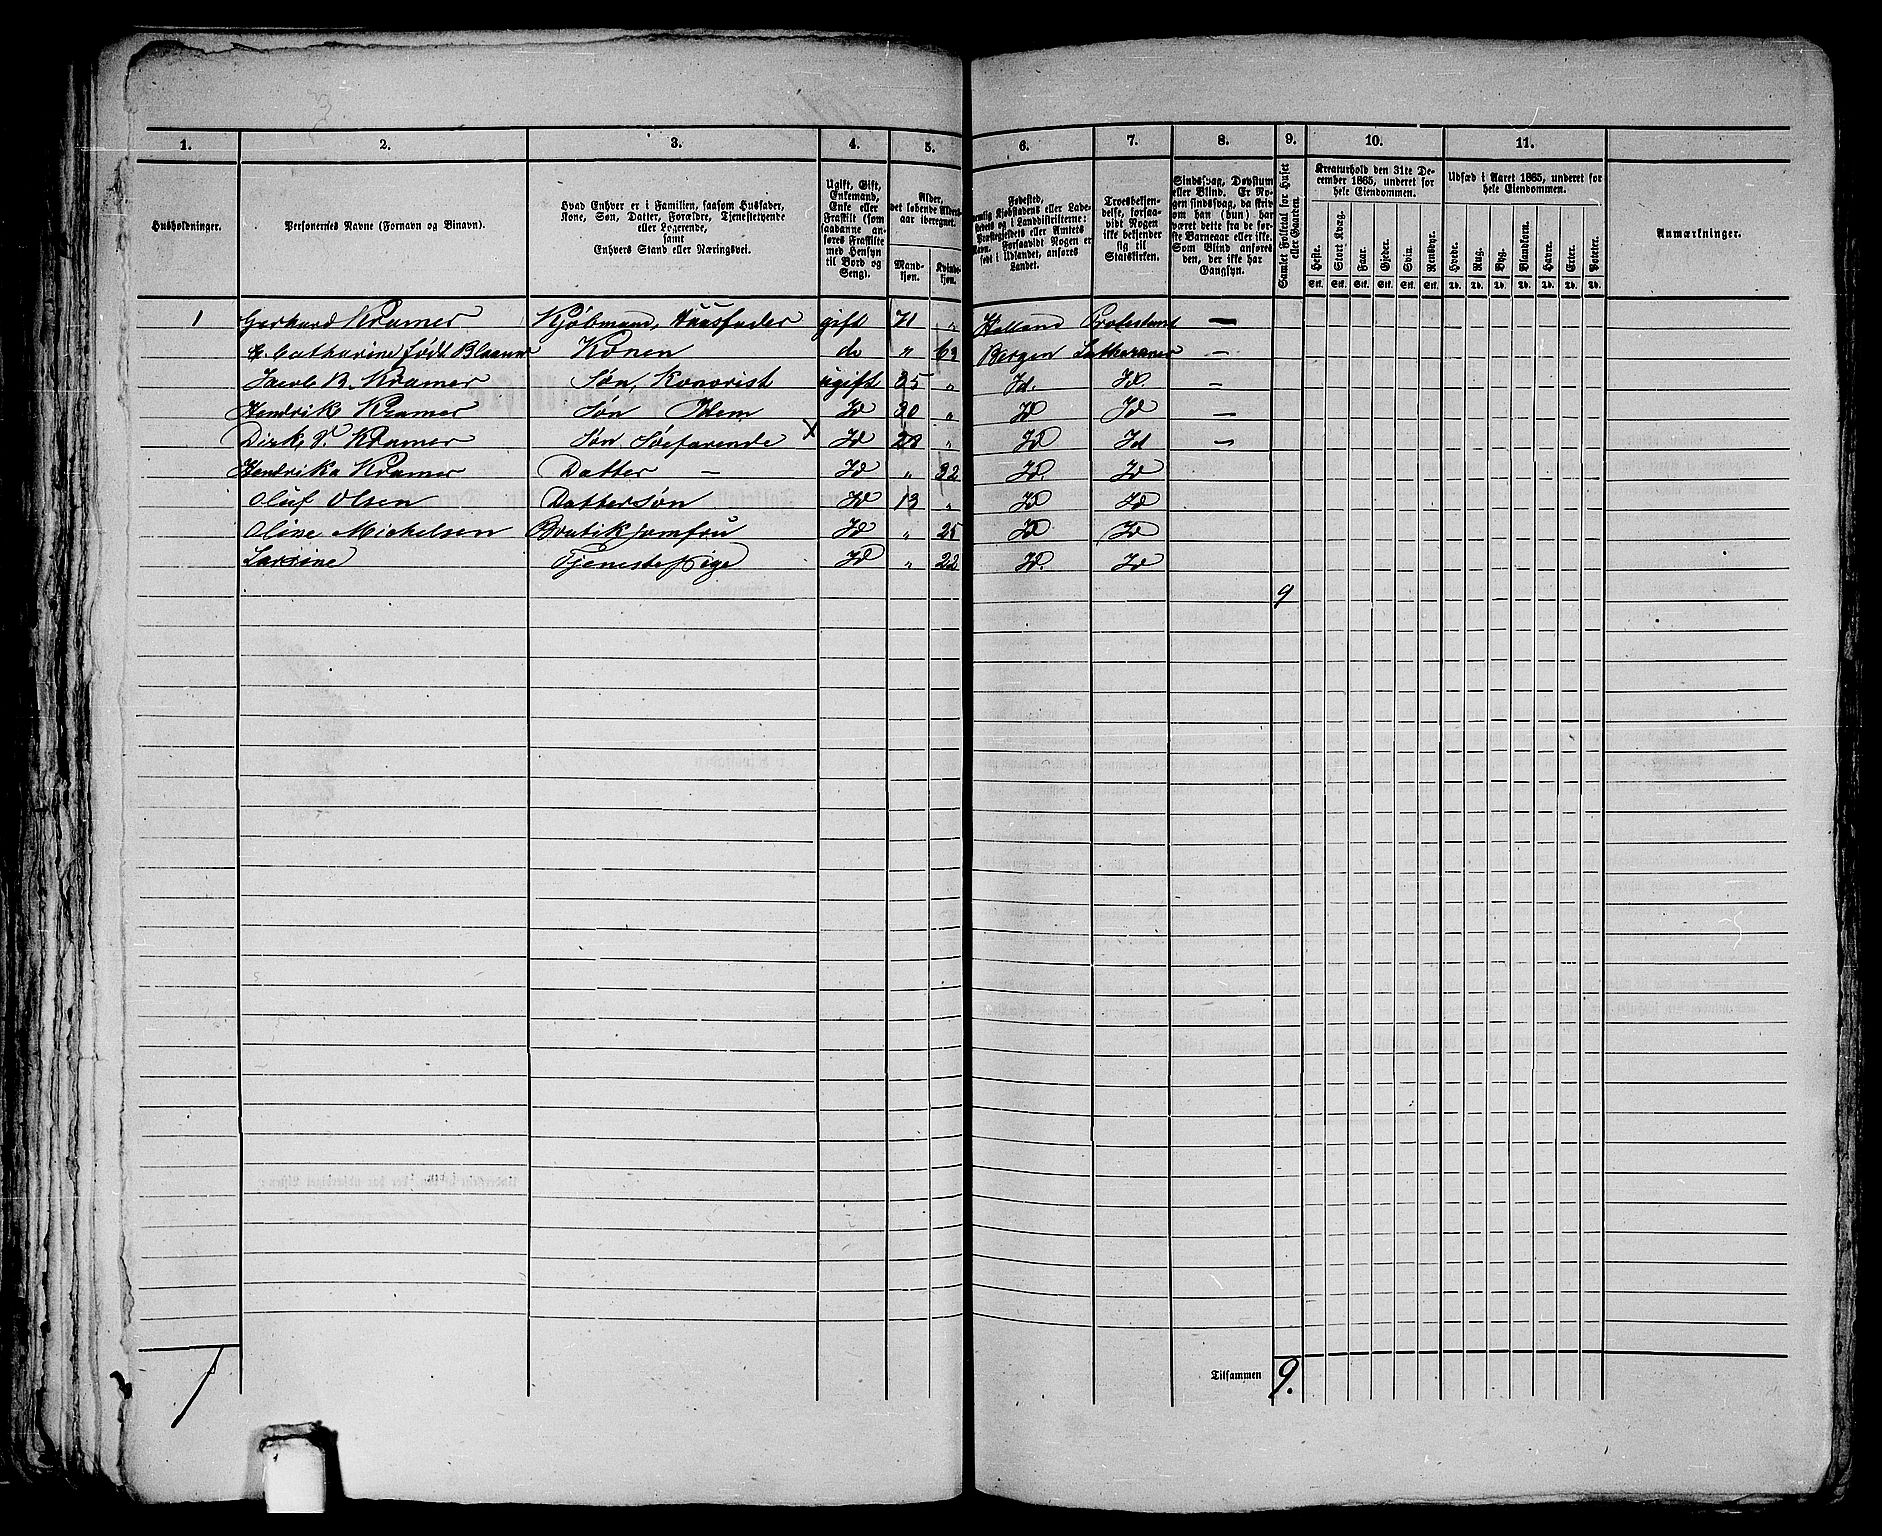 1. 2. 3. 4. 5. 6. 7. 8. 9. 10. 11.
Husholdninger.
Personernes Navne (Fornavn og Binavn).
Hvad Enhver er i Familien, saasom Husfader,
Kone, Søn, Datter, Forældre, Tjenestetyende
eller Logerende,
samt
Enhvers Stand eller Næringsvei.
Ugift, Gift,
Enkemand,
Enke eller
Fraskilt (som
saadanne an-
føres Fraskilte
med Hensyn
til Bord og
Seng).
Alder,
det løbende Alders-
aar iberegnet.
Mand-
kjøn.
Kvinde-
kjøn.
Fødested,
nemlig Kjøbstadens eller Lade-
stedets og i Landdistrikterne:
Præstegjeldets eller Amtets
Navn. Forsaavidt Nogen er
født i Udlandet, anføres
Landet.
Troesbekjen-
delse, forsaa-
vidt Nogen
ikke bekjender
sig til
Statskirken.
Sindssvag, Døvstum
eller Blind. Er No-
gen sindssvag, da skriv
om han (hun) har
været dette fra de før-
ste Barneaar eller ikke.
Som Blind anføres
den, der ikke har
Gangsyn.
Samlet Folketal for Huset
eller Gaarden.
Kreaturhold den 31te De-
cember 1865, underet for
hele Eiendommen.
Heste. Stort Kvæg. Faar. Gjeder. Svin. Rensdyr.
Stk. Stk. Stk. Stk. Stk. Stk.
Udsæd i Aaret 1865, underet for
hele Eiendommen.
Hvede. Rug. Byg. Blandkorn. Havre. Erter. Poteter.
Td. Td. Td. Td. Td. Td. Td.
Anmærkninger.
1 Gerhard Kramer Kjøbmand, Huusfader gift 71 " Holland Protestant —
E. Catharine født Blaauw Konen do " 63 Bergen Lutheraner —
Jacob B. Kramer Søn, Kontorist ugift 35 " Id. Id. —
Hendrik Kramer Søn Idem Id 30 " Id Id —
Dirk V. Kramer Søn Søefarende X Id 28 " Id Id —
Hendrika Kramer Datter — Id " 32 Id. Id
Oluf Olsen Dattersøn Id 13 " Id Id
Oline Michelsen Boutikjomfru Id " 25 Id Id
Larsine Tjenestepige Id " 22 Id. Id
9
1 Tilsammen 9.